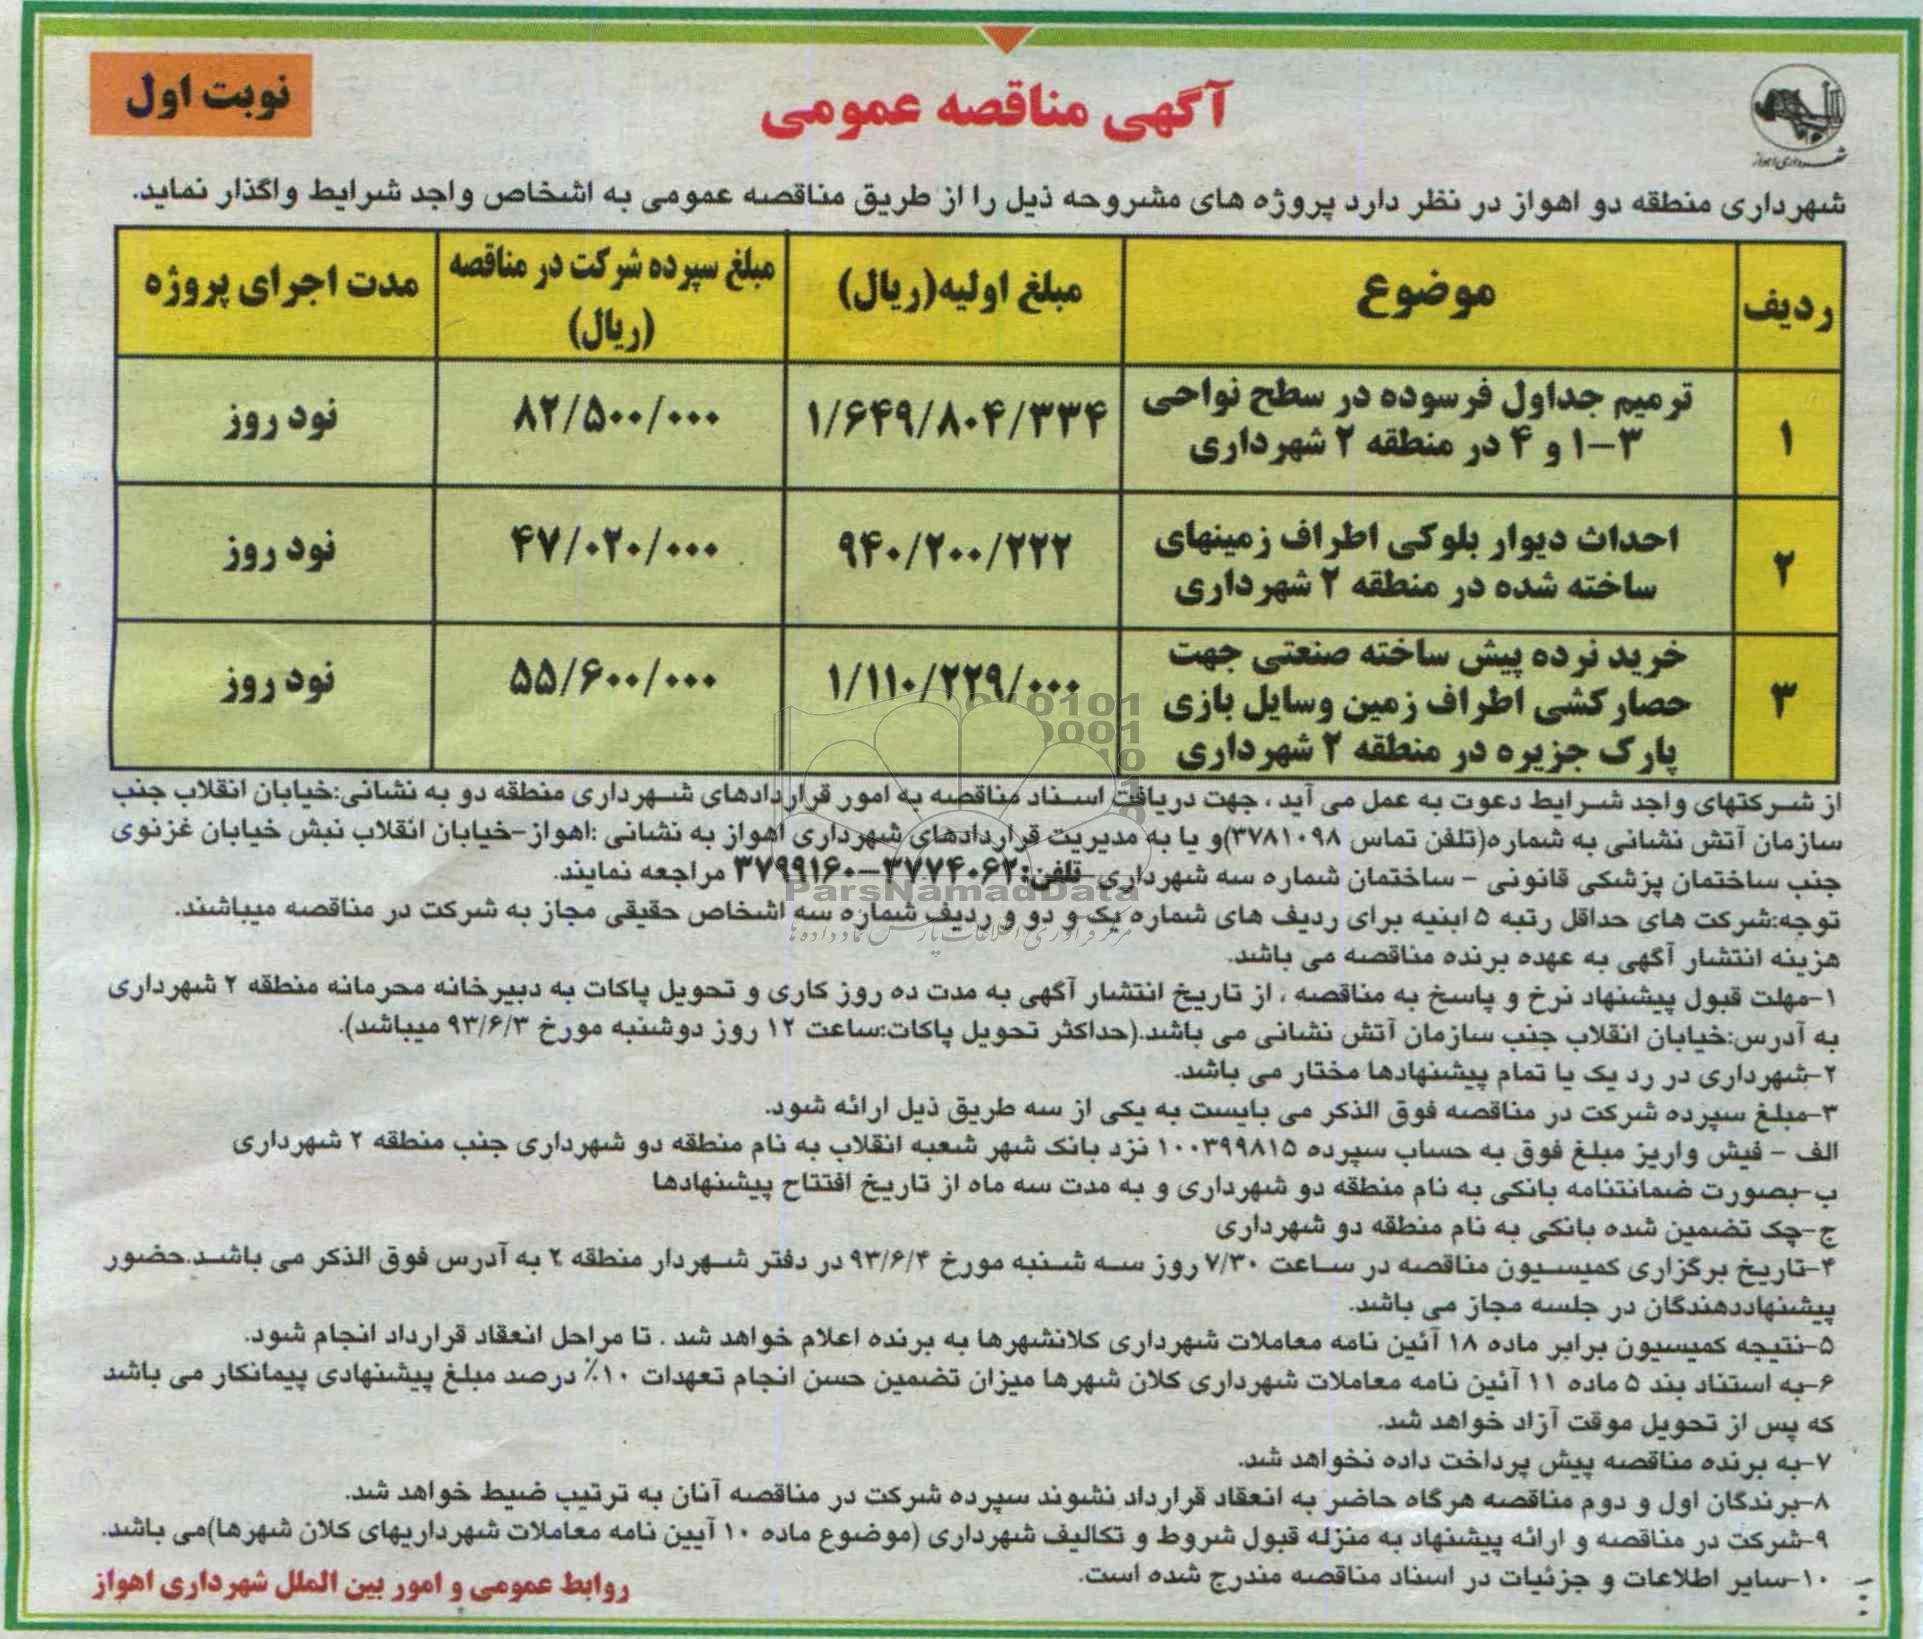 نوبت اول
آگهی مناقصه عمومی
شهرداری اهواز
شهرداری منطقه دو اهواز در نظر دارد پروژه های مشروحه ذیل را از طریق مناقصه عمومی به اشخاص واجد شرایط واگذار نماید.
ردیف
موضوع
مبلغ اولیه(ریال)
مبلغ سپرده شرکت در مناقصه
(ریال)
مدت اجرای پروژه
۱
ترمیم جداول فرسوده در سطح نواحی
۳-۱ و ۴ در منطقه ۲ شهرداری
۱/۶۴۹/۸۰۴/۳۳۴
۸۲/۵۰۰/۰۰۰
نود روز
۲
احداث دیوار بلوکی اطراف زمینهای
ساخته شده در منطقه ۲ شهرداری
۹۴۰/۲۰۰/۲۲۲
۴۷/۰۲۰/۰۰۰
نود روز
۳
خرید نرده پیش ساخته صنعتی جهت
حصارکشی اطراف زمین وسایل بازی
پارک جزیره در منطقه ۲ شهرداری
۱/۱۱۰/۲۲۹/۰۰۰
۵۵/۶۰۰/۰۰۰
نود روز
از شرکتهای واجد شرایط دعوت به عمل می آید ، جهت دریافت اسناد مناقصه به امور قراردادهای شهرداری منطقه دو به نشانی:خیابان انقلاب جنب
سازمان آتش نشانی به شماره(تلفن تماس ۳۷۸۱۰۹۸)و یا به مدیریت قراردادهای شهرداری اهواز به نشانی :اهواز-خیابان انقلاب نبش خیابان غزنوی
جنب ساختمان پزشکی قانونی - ساختمان شماره سه شهرداری تلفن:۳۷۷۴۰۶۲-۳۷۹۹۱۶۰ مراجعه نمایند.
توجه:شرکت های حداقل رتبه ۵ ابنیه برای ردیف های شماره یک و دو و ردیف شماره سه اشخاص حقیقی مجاز به شرکت در مناقصه میباشند.
هزینه انتشار آگهی به عهده برنده مناقصه می باشد.
۱-مهلت قبول پیشنهاد نرخ و پاسخ به مناقصه ، از تاریخ انتشار آگهی به مدت ده روز کاری و تحویل پاکات به دبیرخانه محرمانه منطقه ۲ شهرداری
به آدرس:خیابان انقلاب جنب سازمان آتش نشانی می باشد.(حداکثر تحویل پاکات:ساعت ۱۲ روز دوشنبه مورخ ۹۳/۶/۳ میباشد).
۲-شهرداری در رد یک یا تمام پیشنهادها مختار می باشد.
۳-مبلغ سپرده شرکت در مناقصه فوق الذکر می بایست به یکی از سه طریق ذیل ارائه شود.
الف - فیش واریز مبلغ فوق به حساب سپرده ۱۰۰۳۹۹۸۱۵ نزد بانک شهر شعبه انقلاب به نام منطقه دو شهرداری جنب منطقه ۲ شهرداری
ب-بصورت ضمانتنامه بانکی به نام منطقه دو شهرداری و به مدت سه ماه از تاریخ افتتاح پیشنهادها
ج-چک تضمین شده بانکی به نام منطقه دو شهرداری
۴-تاریخ برگزاری کمیسیون مناقصه در ساعت ۷/۳۰ روز سه شنبه مورخ ۹۳/۶/۴ در دفتر شهردار منطقه ۲ به آدرس فوق الذکر می باشد.حضور
پیشنهاددهندگان در جلسه مجاز می باشد.
۵-نتیجه کمیسیون برابر ماده ۱۸ آئین نامه معاملات شهرداری کلانشهرها به برنده اعلام خواهد شد . تا مراحل انعقاد قرارداد انجام شود.
۶-به استناد بند ۵ ماده ۱۱ آئین نامه معاملات شهرداری کلان شهرها میزان تضمین حسن انجام تعهدات ۱۰٪ درصد مبلغ پیشنهادی پیمانکار می باشد
که پس از تحویل موقت آزاد خواهد شد.
۷-به برنده مناقصه پیش پرداخت داده نخواهد شد.
۸-برندگان اول و دوم مناقصه هرگاه حاضر به انعقاد قرارداد نشوند سپرده شرکت در مناقصه آنان به ترتیب ضبط خواهد شد.
۹-شرکت در مناقصه و ارائه پیشنهاد به منزله قبول شروط و تکالیف شهرداری (موضوع ماده ۱۰ آیین نامه معاملات شهرداریهای کلان شهرها)می باشد.
۱۰-سایر اطلاعات و جزئیات در اسناد مناقصه مندرج شده است.
روابط عمومی و امور بین الملل شهرداری اهواز
ParsNamadData
مرکز فرآوری اطلاعات پارس نماد داده ها